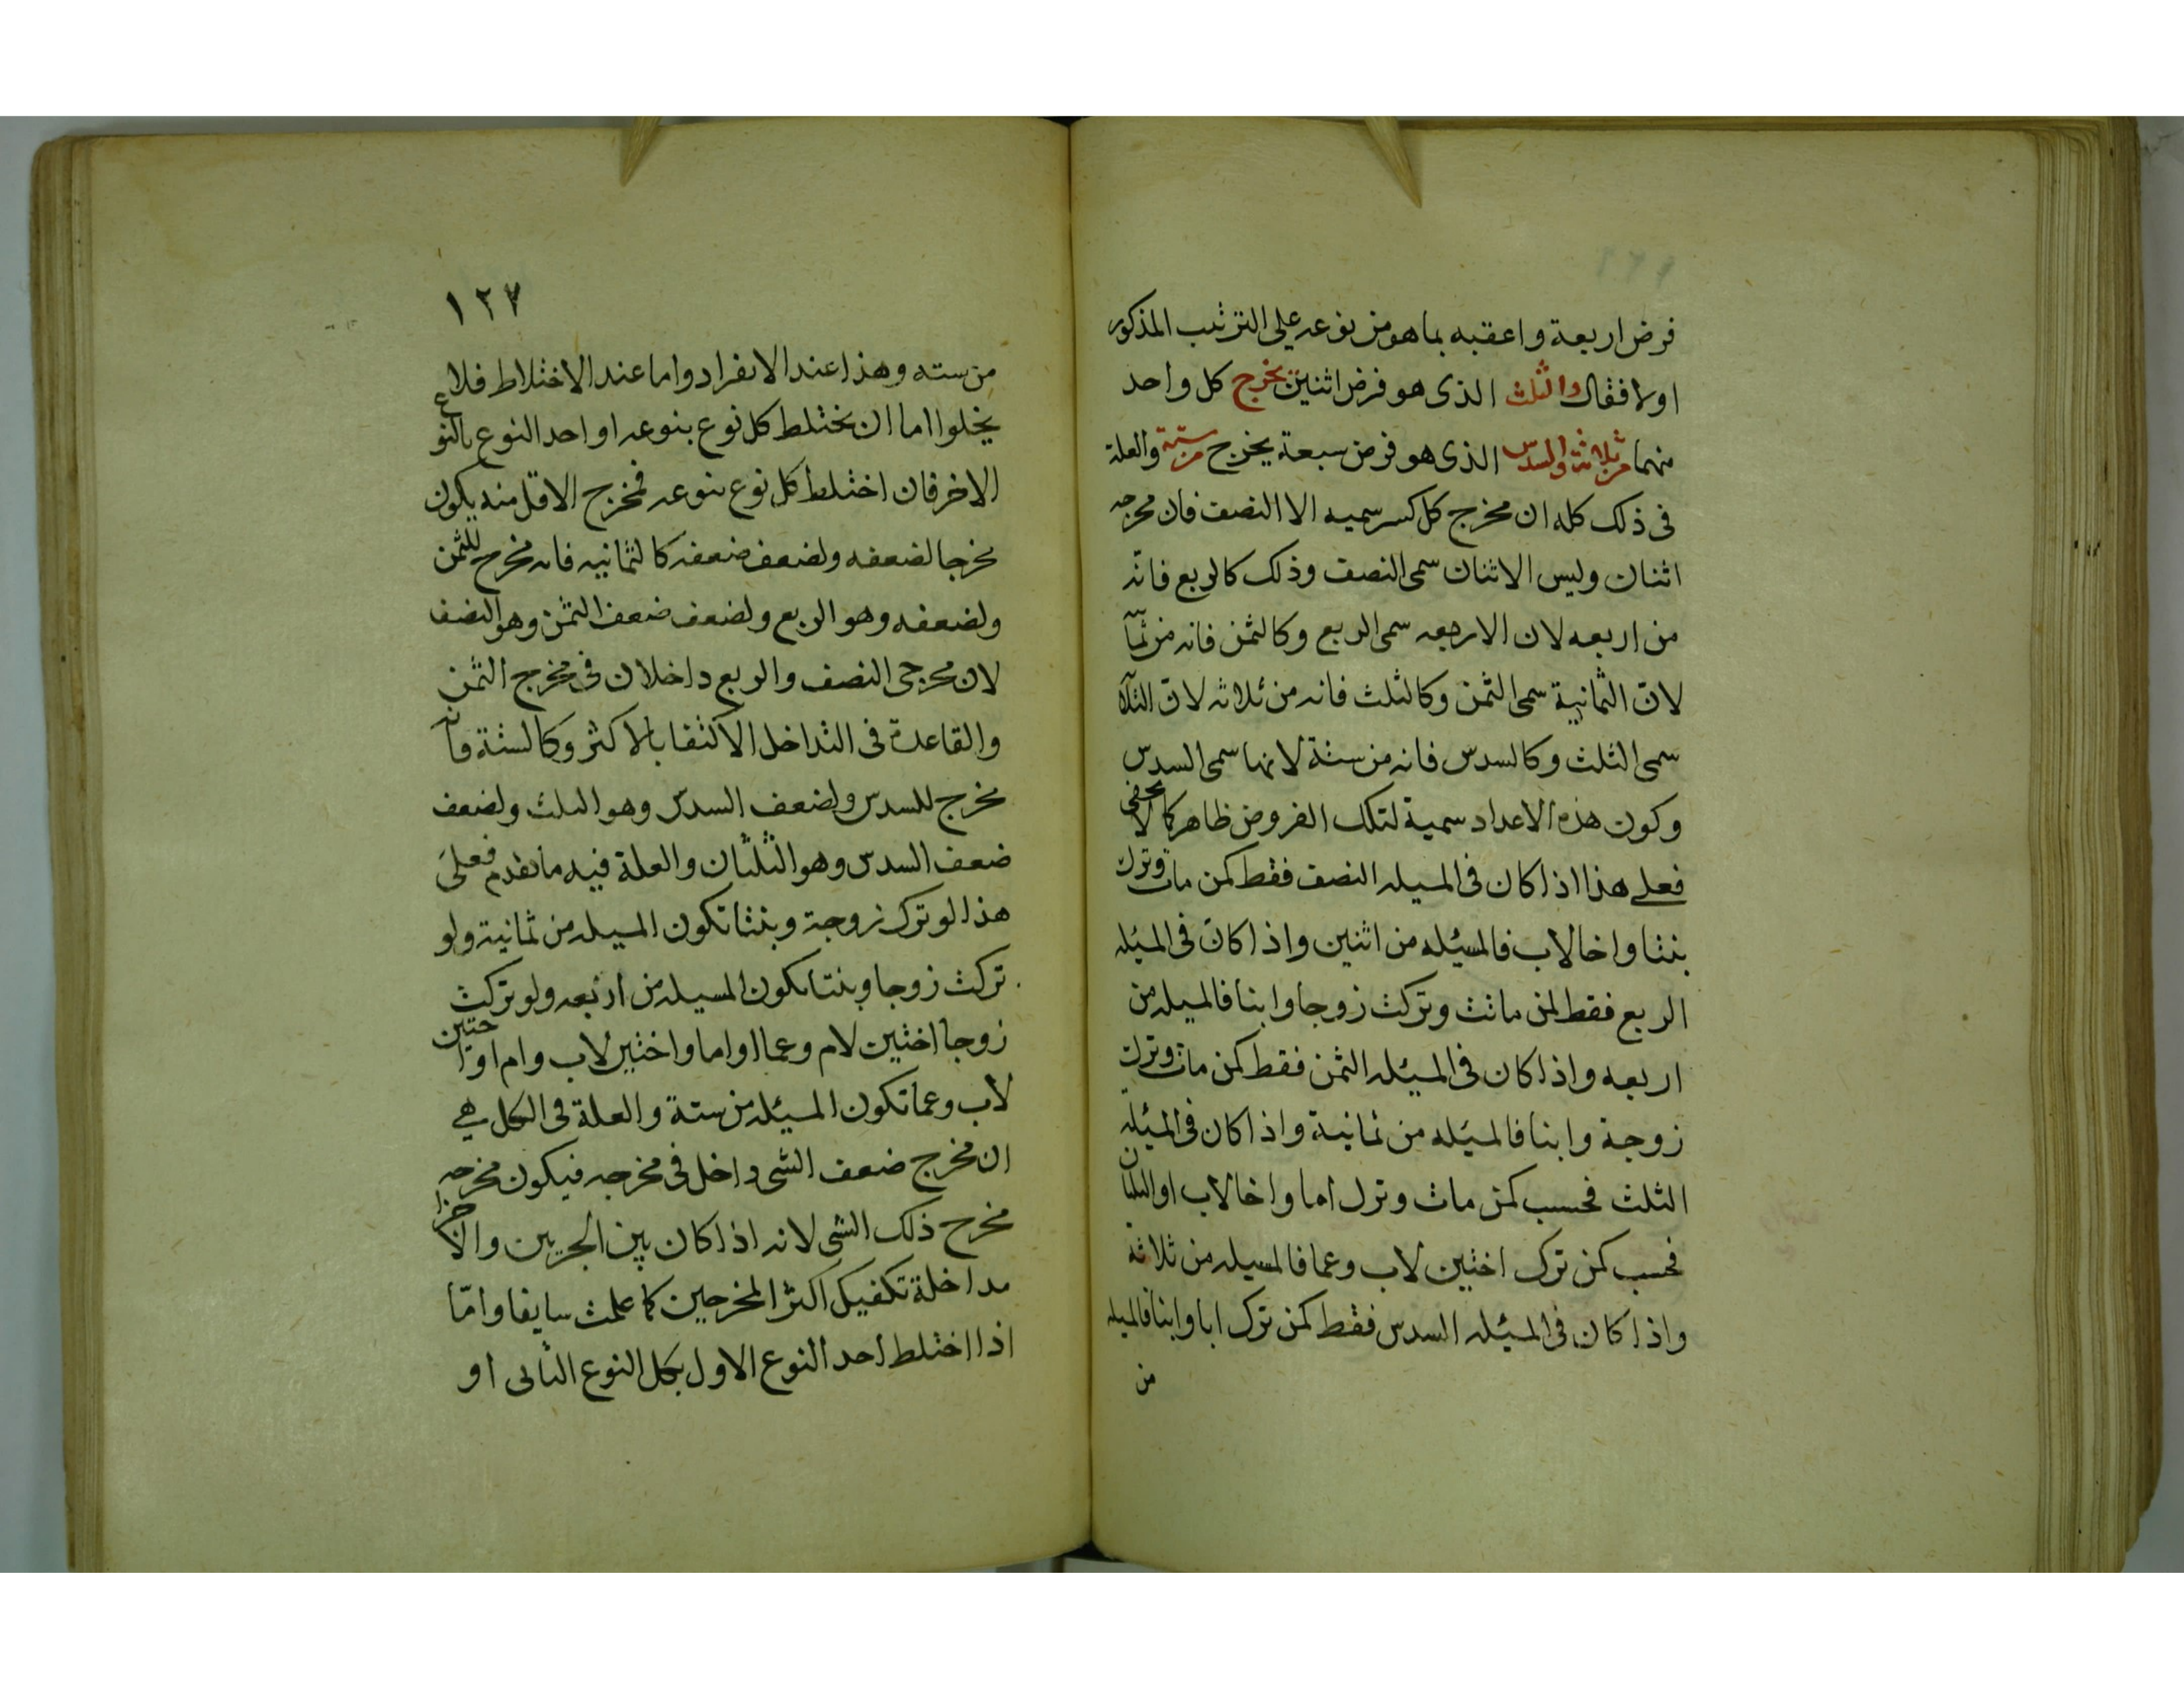 فرض اربعة واعقبه بما هو من نوعه على الترتيب المذكور
اولا فقال والثلث الذى هو فرض اثنين يخرج كل واحد
منهما من ثلاثة والسدس الذى هو فرض سبعة يخرج من ستة والعلة
فى ذلك كله ان مخرج كل كسر سميه الا النصف فان مخرجه
اثنان وليس الاثنان سمى النصف وذلك كالربع فانه
من اربعه لان الاربعه سمى الربع وكالثمن فانه من ثمآ
لان الثمانية سمى الثمن وكالثلث فانه من ثلاثه لان الثلآ
سمى الثلث وكالسدس فانه من ستة لانها سمى السدس
وكون هذه الاعداد سمية لتلك الفروض ظاهر كما لا يخفى
فعلى هذا اذا كان فى المسيله النصف فقط كمن مات وترك
بنتا واخا لاب فالمسئله من اثنين واذا كان فى المسئله
الربع فقط لمن ماتت وتركت زوجا وابنا فالمسيله من
اربعه واذا كان فى المسئله الثمن فقط كمن مات وترك
زوجة وابنا فالمسئله من ثمانية واذا كان فى المسئله
الثلث فحسب كمن مات وترك اما واخا لاب او الثلثان
فحسب كمن ترك اختين لاب وعما فالمسيله من ثلاثة
واذا كان فى المسئله السدس فقط كمن ترك ابا وابنا فالمسيله
من
١٢٧
من سته وهذا عند الانفراد واما عند الاختلاط فلا
يخلوا اما ان يختلط كل نوع بنوعه او احد النوع بالنوع
الاخر فان اختلط كل نوع بنوعه فمخرج الاقل منه يكون
مخرجا لضعفه ولضعف ضعفه كالثمانيه فانه مخرج للثمن
ولضعفه وهو الربع ولضعف ضعف الثمن وهو النصف
لان مخرجى النصف والربع داخلان فى مخرج الثمن
والقاعدة فى التداخل الاكتفا بالاكثر وكالستة فانه
مخرج للسدس ولضعف السدس وهو الثلث ولضعف
ضعف السدس وهو الثلثان والعلة فيه ما تقدم فعلى
هذا لو ترك زوجة وبنتا تكون المسيله من ثمانية ولو
تركت زوجا وبنتا تكون المسيله من اربعه ولو تركت
زوجا اختين لام وعما او اما واختين لاب وام او اختين
لاب وعما تكون المسيئله من ستة والعلة فى الكل هى
ان مخرج ضعف الشى داخل فى مخرجه فيكون مخرجه
مخرج ذلك الشى لانه اذا كان بين الجزيين والاجزا
مداخلة تكفيك اكثر المخرجين كما علمت سايفا وامّا
اذا اختلط احد النوع الاول بكل النوع الثانى او